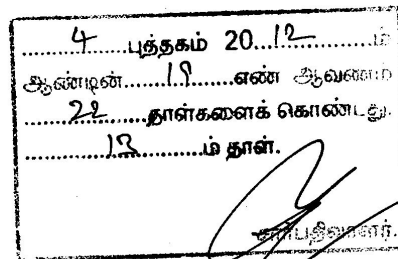 4 புத்தகம் 2012ம்
ஆண்டின் 19 எண் ஆவணம்
22 தாள்களைக் கொண்டது.
13 ம் தாள்.
சார்பதிவாளர்.